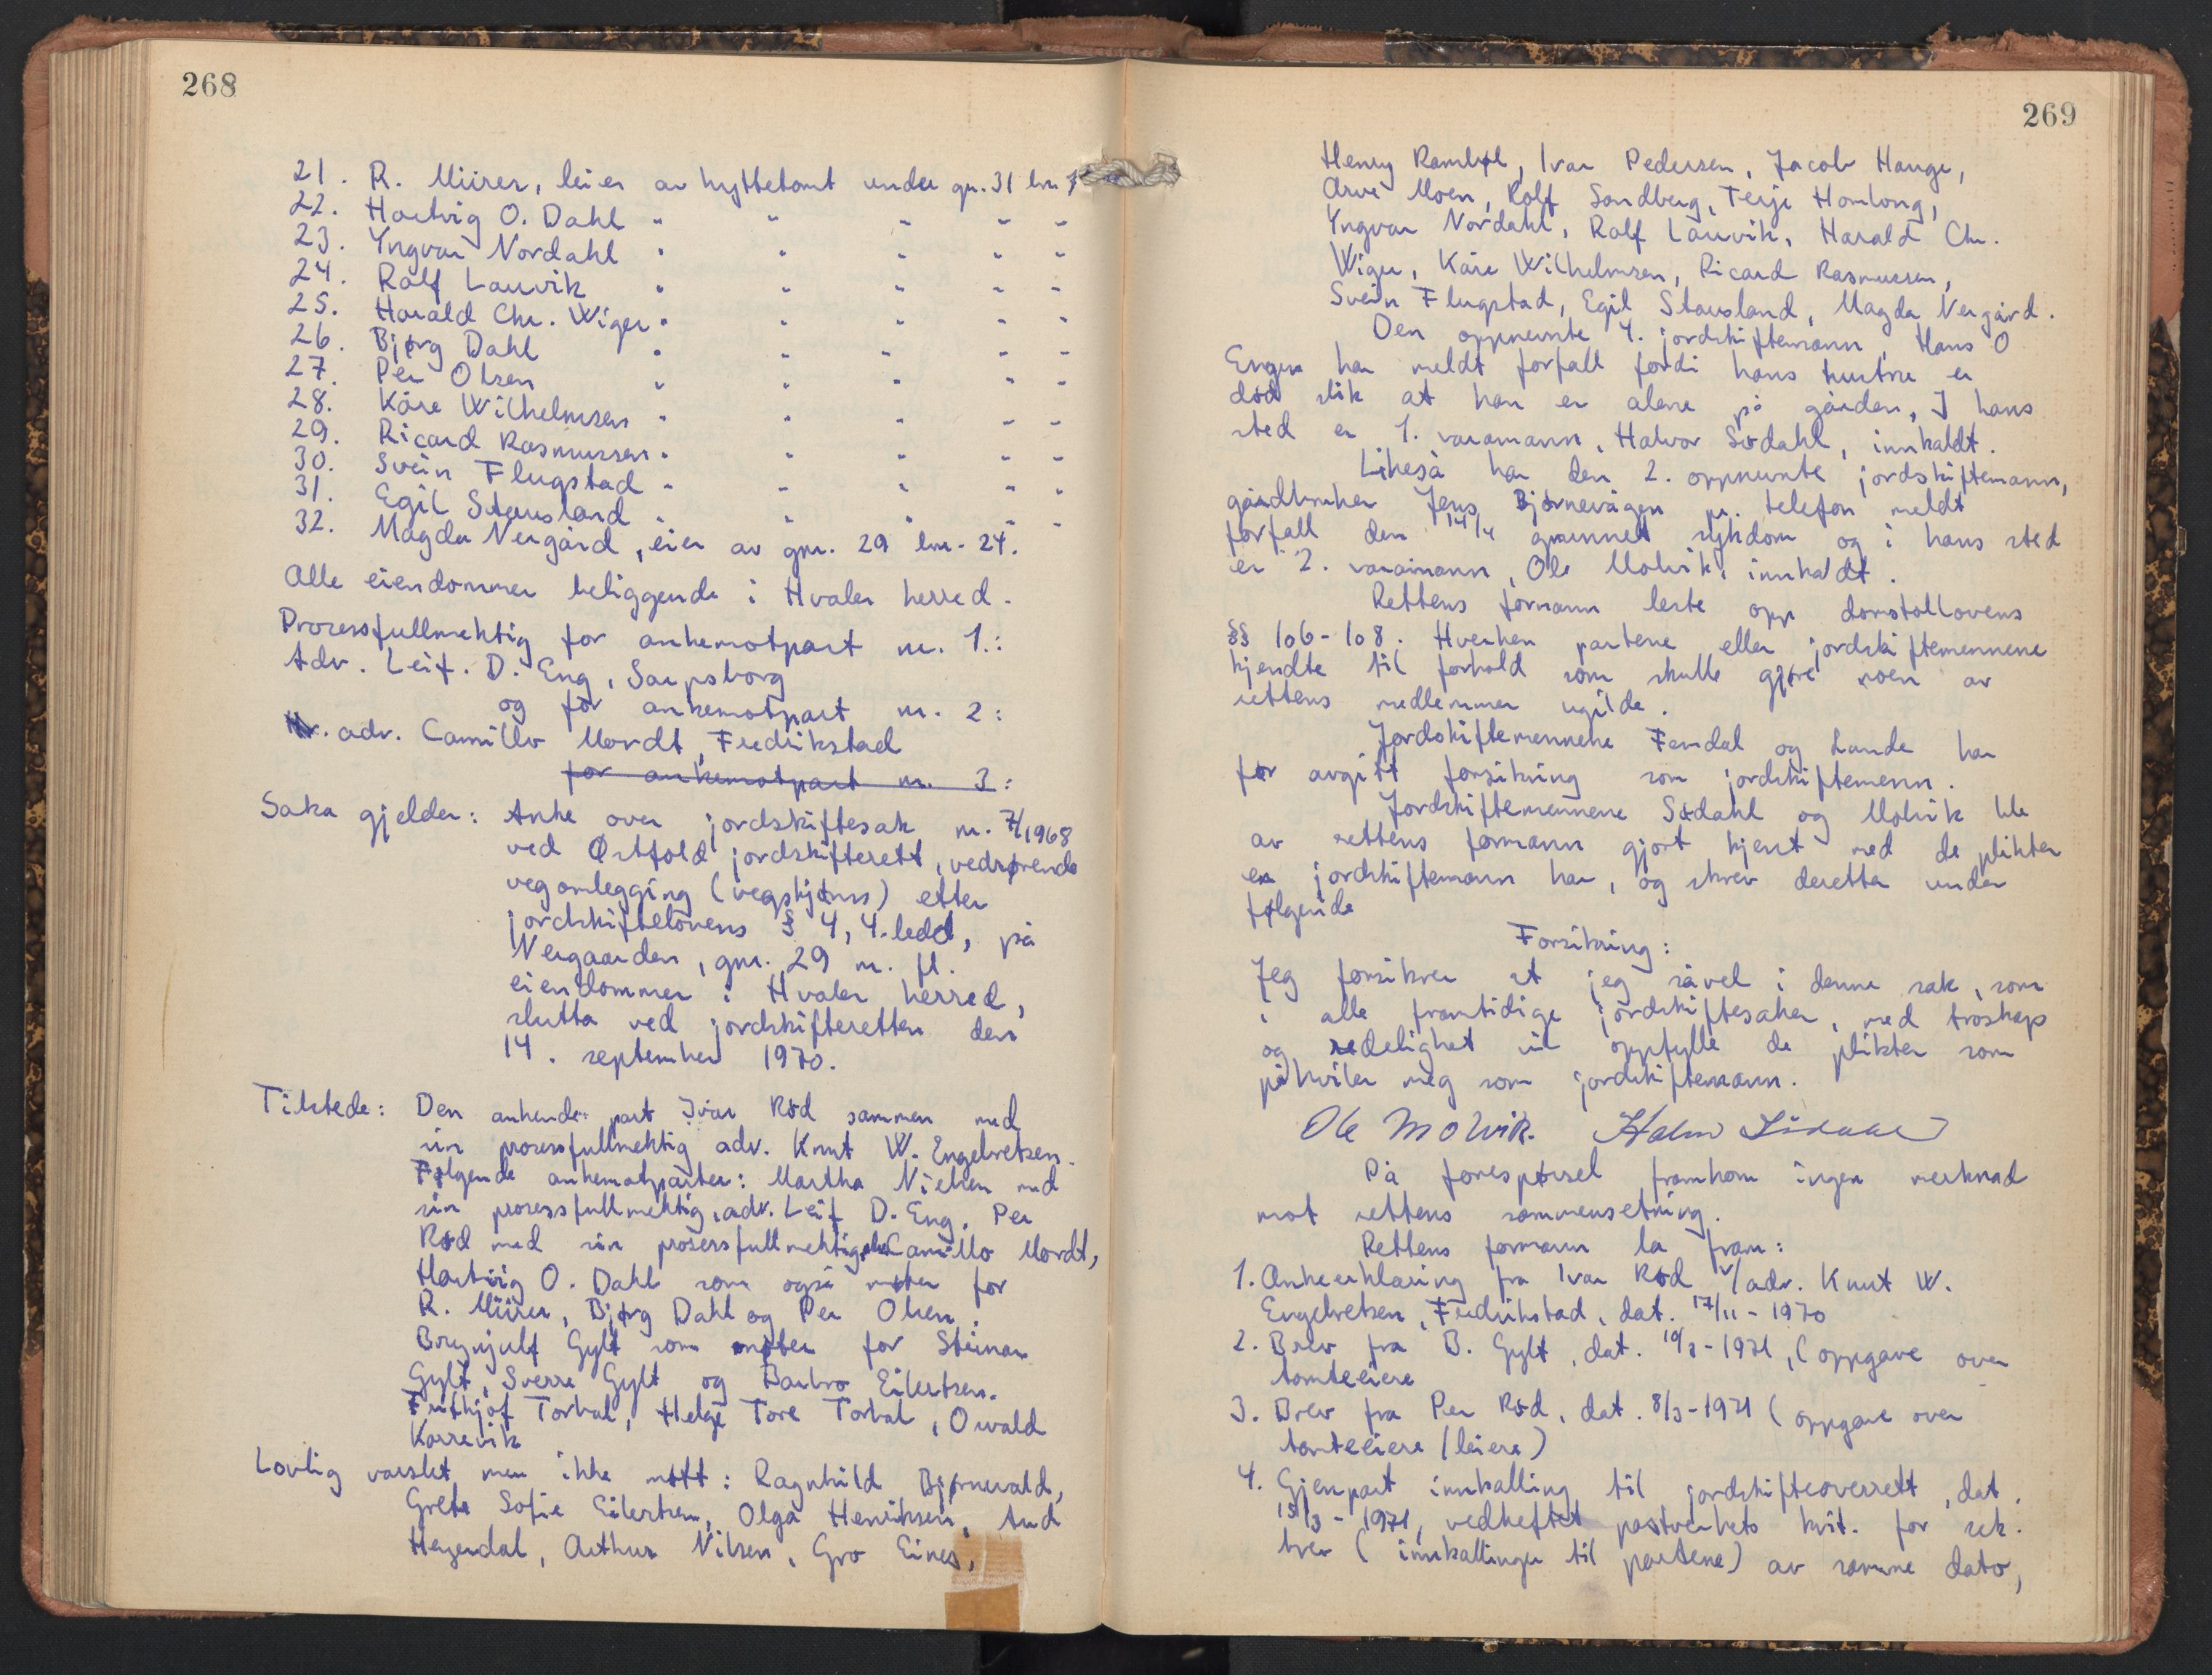 268
21. R. Müirer, leier av hyttetomt under gn. 31 bnr. 7
22. Hartvig O. Dahl " " " " "
23. Yngvar Nordahl " " " " "
24. Rolf Lauvik " " " " "
25. Harald Chr. Wiger " " " " "
26. Bjørg Dahl " " " " "
27. Per Olsen " " " " "
28. Kåre Wilhelmsen " " " " "
29. Ricard Rasmussen " " " " "
30. Svein Flugstad " " " " "
31. Egil Stausland " " " " "
32. Magda Nergård, eier av gnr. 29 bnr. 24.
Alle eiendommer beliggende i Hvaler herred.
Prosessfullmektig for ankemotpart nr. 1.:
Adv. Leif. D. Eng, Sarpsborg
og for ankemotpart nr. 2:
adv. Camillo Mordt, Fredrikstad
for ankemotpart nr. 3:
Saka gjelder: Anke over jordskiftesak nr. 7/1968
ved Østfold jordskifterett, vedrørende
vegomlegging (vegskjønn) etter
jordskiftelovens § 4, 4. ledd, på
Nergaarden, gnr. 29 m. fl.
eiendommer i Hvaler herred,
slutta ved jordskifteretten den
14. september 1970.
Tilstede: Den ankende part Ivar Rød sammen med
sin prosessfullmektig adv. Knut W. Engebretsen.
Følgende ankemotparter: Martha Nielsen med
sin prosessfullmektig, adv. Leif D. Eng. Per
Rød med sin prosessfullmektig, adv. Camillo Mordt,
Hartvig O. Dahl som også møter for
R. Müirer, Bjørg Dahl og Per Olsen.
Brynjulf Gylt som møter for Steinar
Gylt, Sverre Gylt og Barbro Eilertsen.
Frithjof Torbal, Helge Tore Torbal, Oswald
Korrevik
Lovlig varslet men ikke møtt: Ragnhild Bjørnevald,
Grete Sofie Eilertsen, Olga Henriksen, Aud
Heyerdal, Arthur Nilsen, Gro Eines,
269
Henry Rambøl, Ivar Pedersen, Jacob Hauge,
Arve Moen, Rolf Sandberg, Terje Homlong,
Yngvar Nordahl, Rolf Lauvik, Harald Chr.
Wiger, Kåre Wilhelmsen, Ricard Rasmussen,
Svein Flugstad, Egil Stausland, Magda Nergård.
Den oppnevnte 4. jordskiftemann, Hans O
Engen har meldt forfall fordi hans hustru er
død slik at han er alene på gården, I hans
sted er 1. varamann, Halvor Sødahl, innkaldt.
Likeså har den 2. oppnevnte jordskiftemann,
gårdbruker Jens Bjørnevågen pr. telefon meldt
forfall den 14/4 grunnet sykdom og i hans sted
er 2. varamann, Ole Molvik, innkaldt.
Rettens formann leste opp domstollovens
§§ 106-108. Hverken partene eller jordskiftemennene
kjendte til forhold som skulle gjøre noen av
rettens medlemmer ugilde.
Jordskiftemennene Femdal og Lande har
før avgitt forsikring som jordskiftemenn.
Jordskiftemennene Sødahl og Molvik ble
av rettens formann gjort kjent med de plikter
en jordskiftemann har, og skrev deretter under
følgende
Forsikring:
Jeg forsikrer at jeg såvel i denne sak, som
i alle framtidige jordskiftesaker, med troskap
og redelighet vil oppfylle de plikter som
påhviler meg som jordskiftemann.
Ole Molvik. Halvor Sødahl
På forespørsel framkom ingen merknad
mot rettens sammensetning.
Rettens formann la fram:
1. Ankeerklæring fra Ivar Rød v/adv. Knut W.
Engebretsen, Fredrikstad, dat. 17/11 - 1970
2. Brev fra B. Gylt, dat. 10/3 - 1971, (oppgave over
tomteeiere
3. Brev fra Per Rød, dat. 8/3 - 1971 (oppgave over
tomteeiere (leiere)
4. Gjenpart innkalling til jordskifteoverrett, dat.
15/3 - 1971, vedheftet postverkets kvit. for rek.
brev (innkallinger til partene) av samme dato,